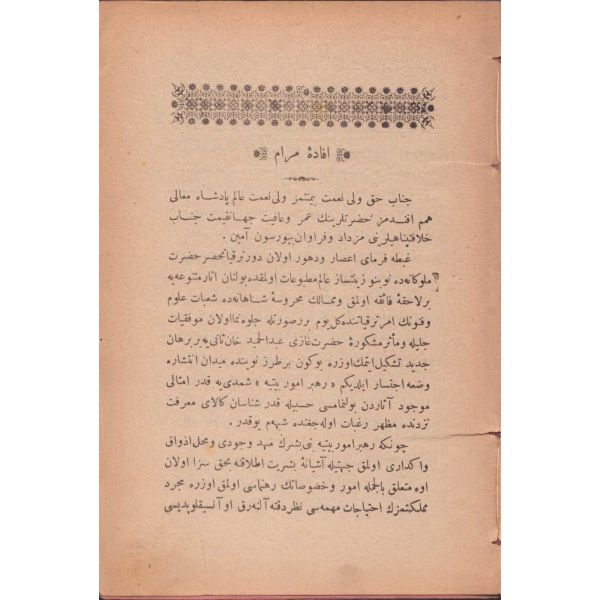 افادهٔ مرام
جناب حق ولی نعمت بیمنتمز ولی نعمت عالم پادشاه معالی
همم افندمز حضرتلرینك عمر و عافیت جهانقیمت جناب
خلافتپناهیلرینی مزداد و فراوان بیورسون آمین .
غبطه فرمای اعصار و دهور اولان دور ترقیاتحصر حضرت
ملوكانه‌ده نوبنو زینتساز عالم مطبوعات اولمقده بولنان آثار متنوعه‌یه
بر لاحقهٔ فائقه اولمق و ممالك محروسهٔ شاهانه‌ده شعبات علوم
و فنونك امر ترقیاتنده كل یوم بر رصورتله جلوه نما اولان موفقیات
جلیله و مآثر مشكورهٔ حضرت غازی عبدالحمید خان ثانی‌یه بر برهان
جدید تشكیل ایتمك اوزره بوكون بر طرز نوینده میدان انتشاره
وضعه اجتسار ایلدیكم « رهبر امور بیتیه » شمدی‌یه قدر امثالی
موجود آثاردن بولنمامسی حسبیله قدر شناسان كالای معرفت
نزدنده مظهر رغبات اوله‌جغنده شبهه‌م یوقدر .
چونكه رهبر امور بیتیه بنی بشرك مهد وجودی و محل اذواق
واكداری اولمق جهتیله آشیانهٔ بشریت اطلاقنه بحق سزا اولان
اوه متعلق بالجمله امور و خصوصاتك رهنماسی اولمق اوزره مجرد
مملكتمزك احتیاجات مهمه‌سی نظر دقته آلنه‌رق او آنسیقلوپدیسی